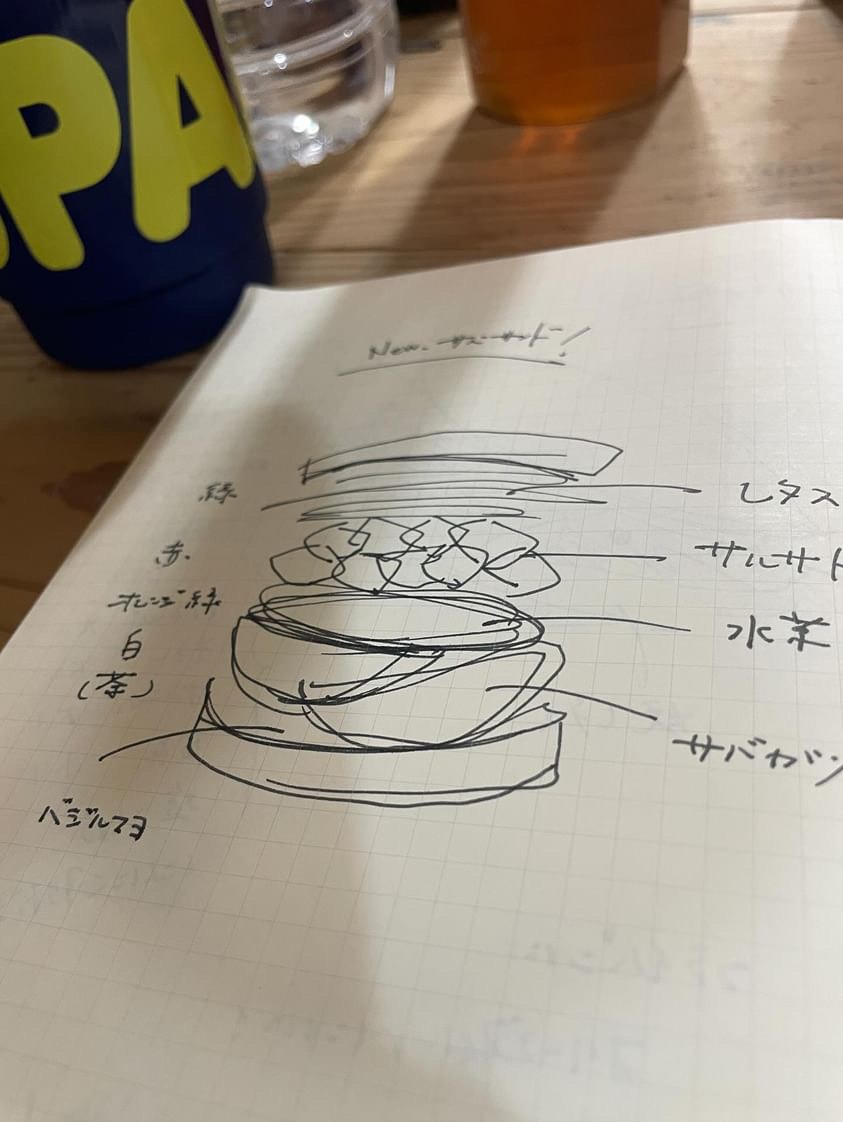 PA
New. サバーサンド!
緑
レタス
赤.
サルサ
オレンジ 緑
水菜
白
(茶)
サバカツ
バジルマヨ